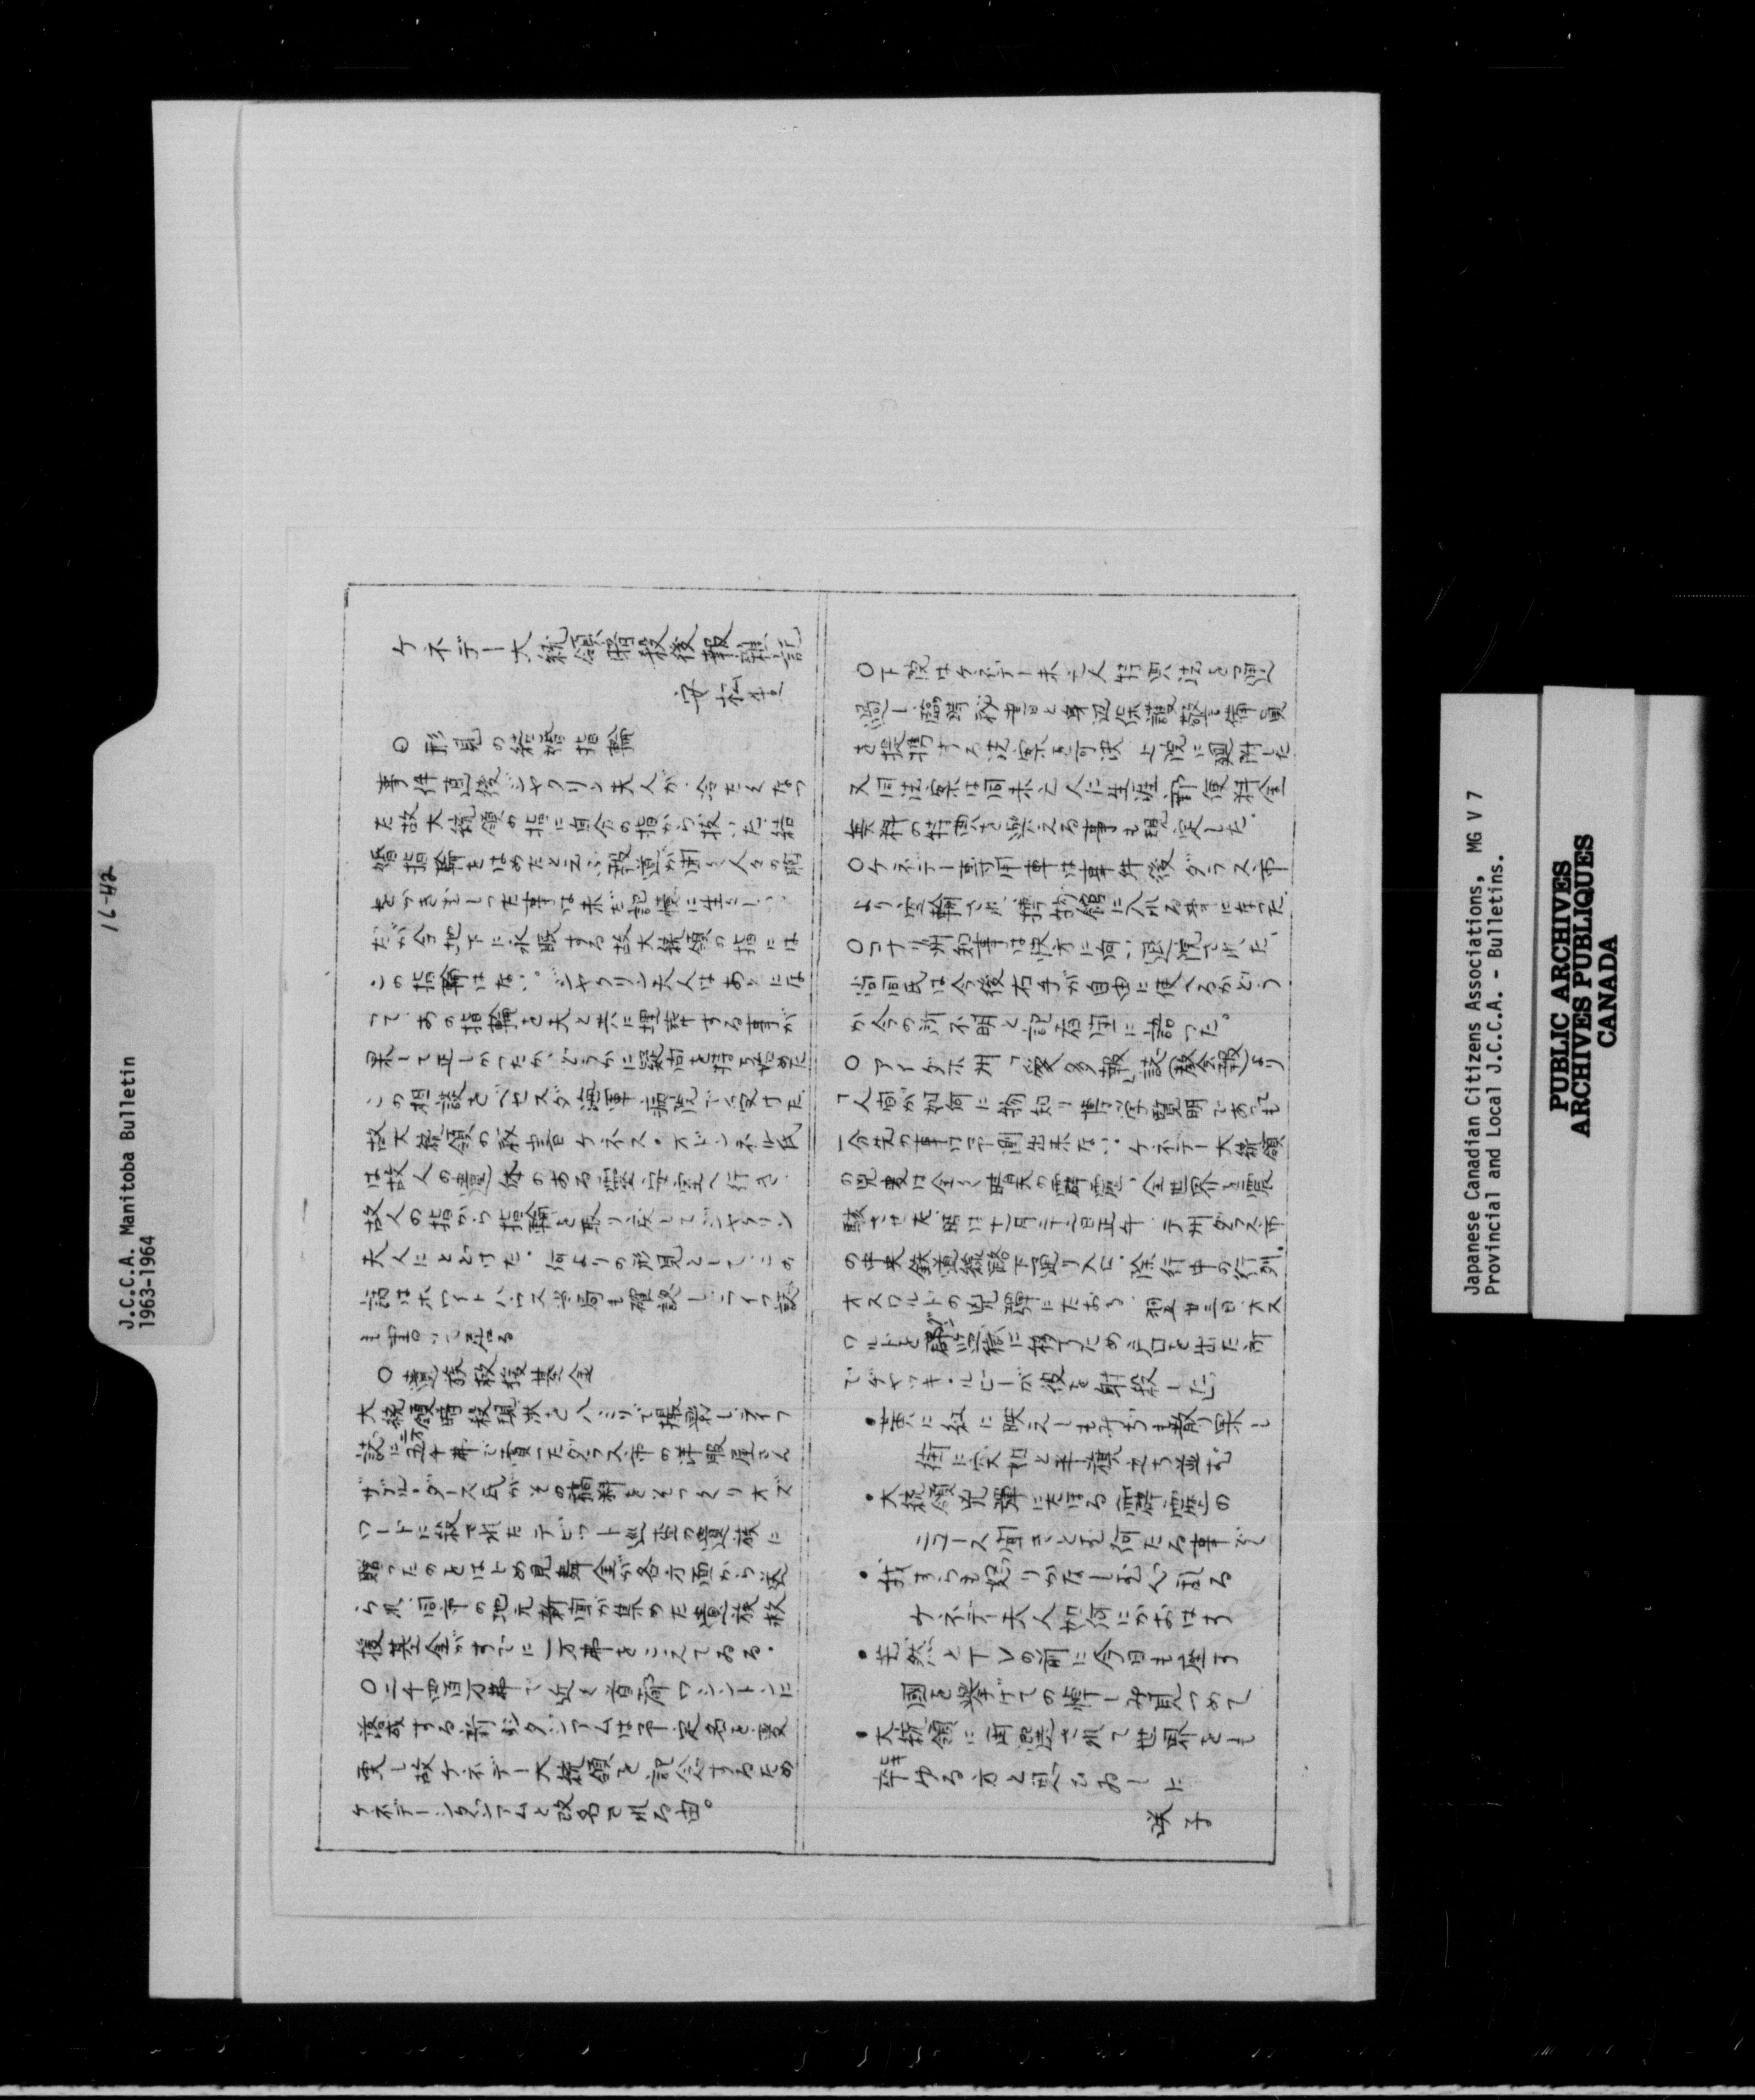 ケネデー大統領暗殺後報雑記
安松生
○形見の結婚指輪
事件直後ジャクリン夫人が、冷たくなつ
た故大統領の指に自分の指から抜いた結
婚指輪をはめたと云ふ報道が聞く人々の胸
をつきさしった事は未だ記憶に生々しい、
だが今地下に永眠する故大統領の指には
この指輪はない。ジャクリン夫人はあとにな
って、あの指輪を夫と共に埋葬する事が
果して正しかったか、どうかに疑問を持ち始めた
この相談をベセスダ海軍病院で受けた
故大統領の秘書ケネス・オドンネル氏
は故人の遺体のある霊安室へ行き、
故人の指から指輪を取り戻してジャクリン
夫人にとどけた。何よりの形見としてこの
話はホワイトハウス当局も確認しライフ誌
も書いて居る
○遺族救援基金
大統領暗殺現状を八ミリで撮影しライフ
誌に二万五千弗で賣ったダラス市の洋服屋さん
ザプルーダース氏がその稿料をそつくりオズ
ワードに殺されたテピット巡査の遺族に
贈ったのをはじめ見舞金が各方面から送
られ、同市の地元新聞が集めた遺族救
援基金がすでに一万弗をこえてゐる。
○二千四百万弗で近く首都ワシントンに
落成する新スタジアムは予定名を変
更し故ケネデー大統領を記念するため
ケネデースタジアムと改名される由。
○下院はケネデー未亡人特典法を通
過し臨時秘書と身辺保護警備員
を提供する法案を可決上院に廻附した
又同法案は同未亡人に生涯郵便料金
無料の特典を与える事も規定した。
○ケネデー専用車は事件後ダラス市
より空輸され、博物館に入れる事になった。
○コナリ州知事は快方に向い退院された、
尚同氏は今後右手が自由に使へるかどう
か今の所不明と記者団に語った。
○アイダホ州「愛多報」誌(教会報)より
「人間が如何に物知り博学賢明であっても
一分先の事は予測出来ない。ケネデー大統領
の兇変は全く晴天の霹靂、全世界を震
駭させた。時は十一月二十二日正午、テ州ダラス市
の中央鉄道線路下通り入口、徐行中の行列。
オスワルドの兇弾にたおる、翌廿三日、オス
ワルドを郡監獄に移すため戸口を出た所
でジャッキ・ルビーが彼を射殺した」
・黄に紅に映えしもみぢも散り果し
街に突如と半旗立ち並む
・大統領兇弾にたほる霹靂の
ニュース聞きとむ何たる事ぞ
・我すらも怒りかなしむ心乱る
ケネデー夫人如何にかおはす
・茫然とTVの前に今日も座す
国を挙げての悼しみ見つめて
・大統領に再選されて世界をも
牽ゆる方と思ひゐしに
咲子
J.C.C.A. Manitoba Bulletin
1963-1964
16-42
Japanese Canadian Citizens Associations, MG V 7
Provincial and Local J.C.C.A. - Bulletins.
PUBLIC ARCHIVES
ARCHIVES PUBLIQUES
CANADA